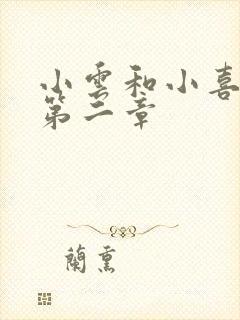 小雲和小喜
第二章
蘭熏